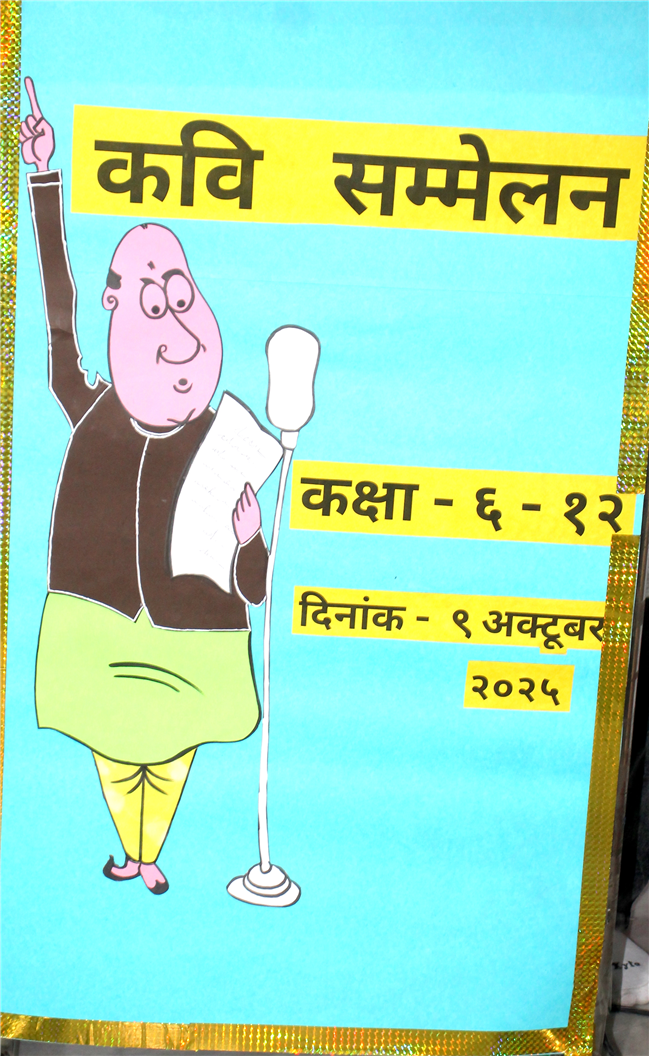 कवि सम्मेलन
कक्षा - ६ - १२
दिनांक - ९ अक्टूबर
२०२५